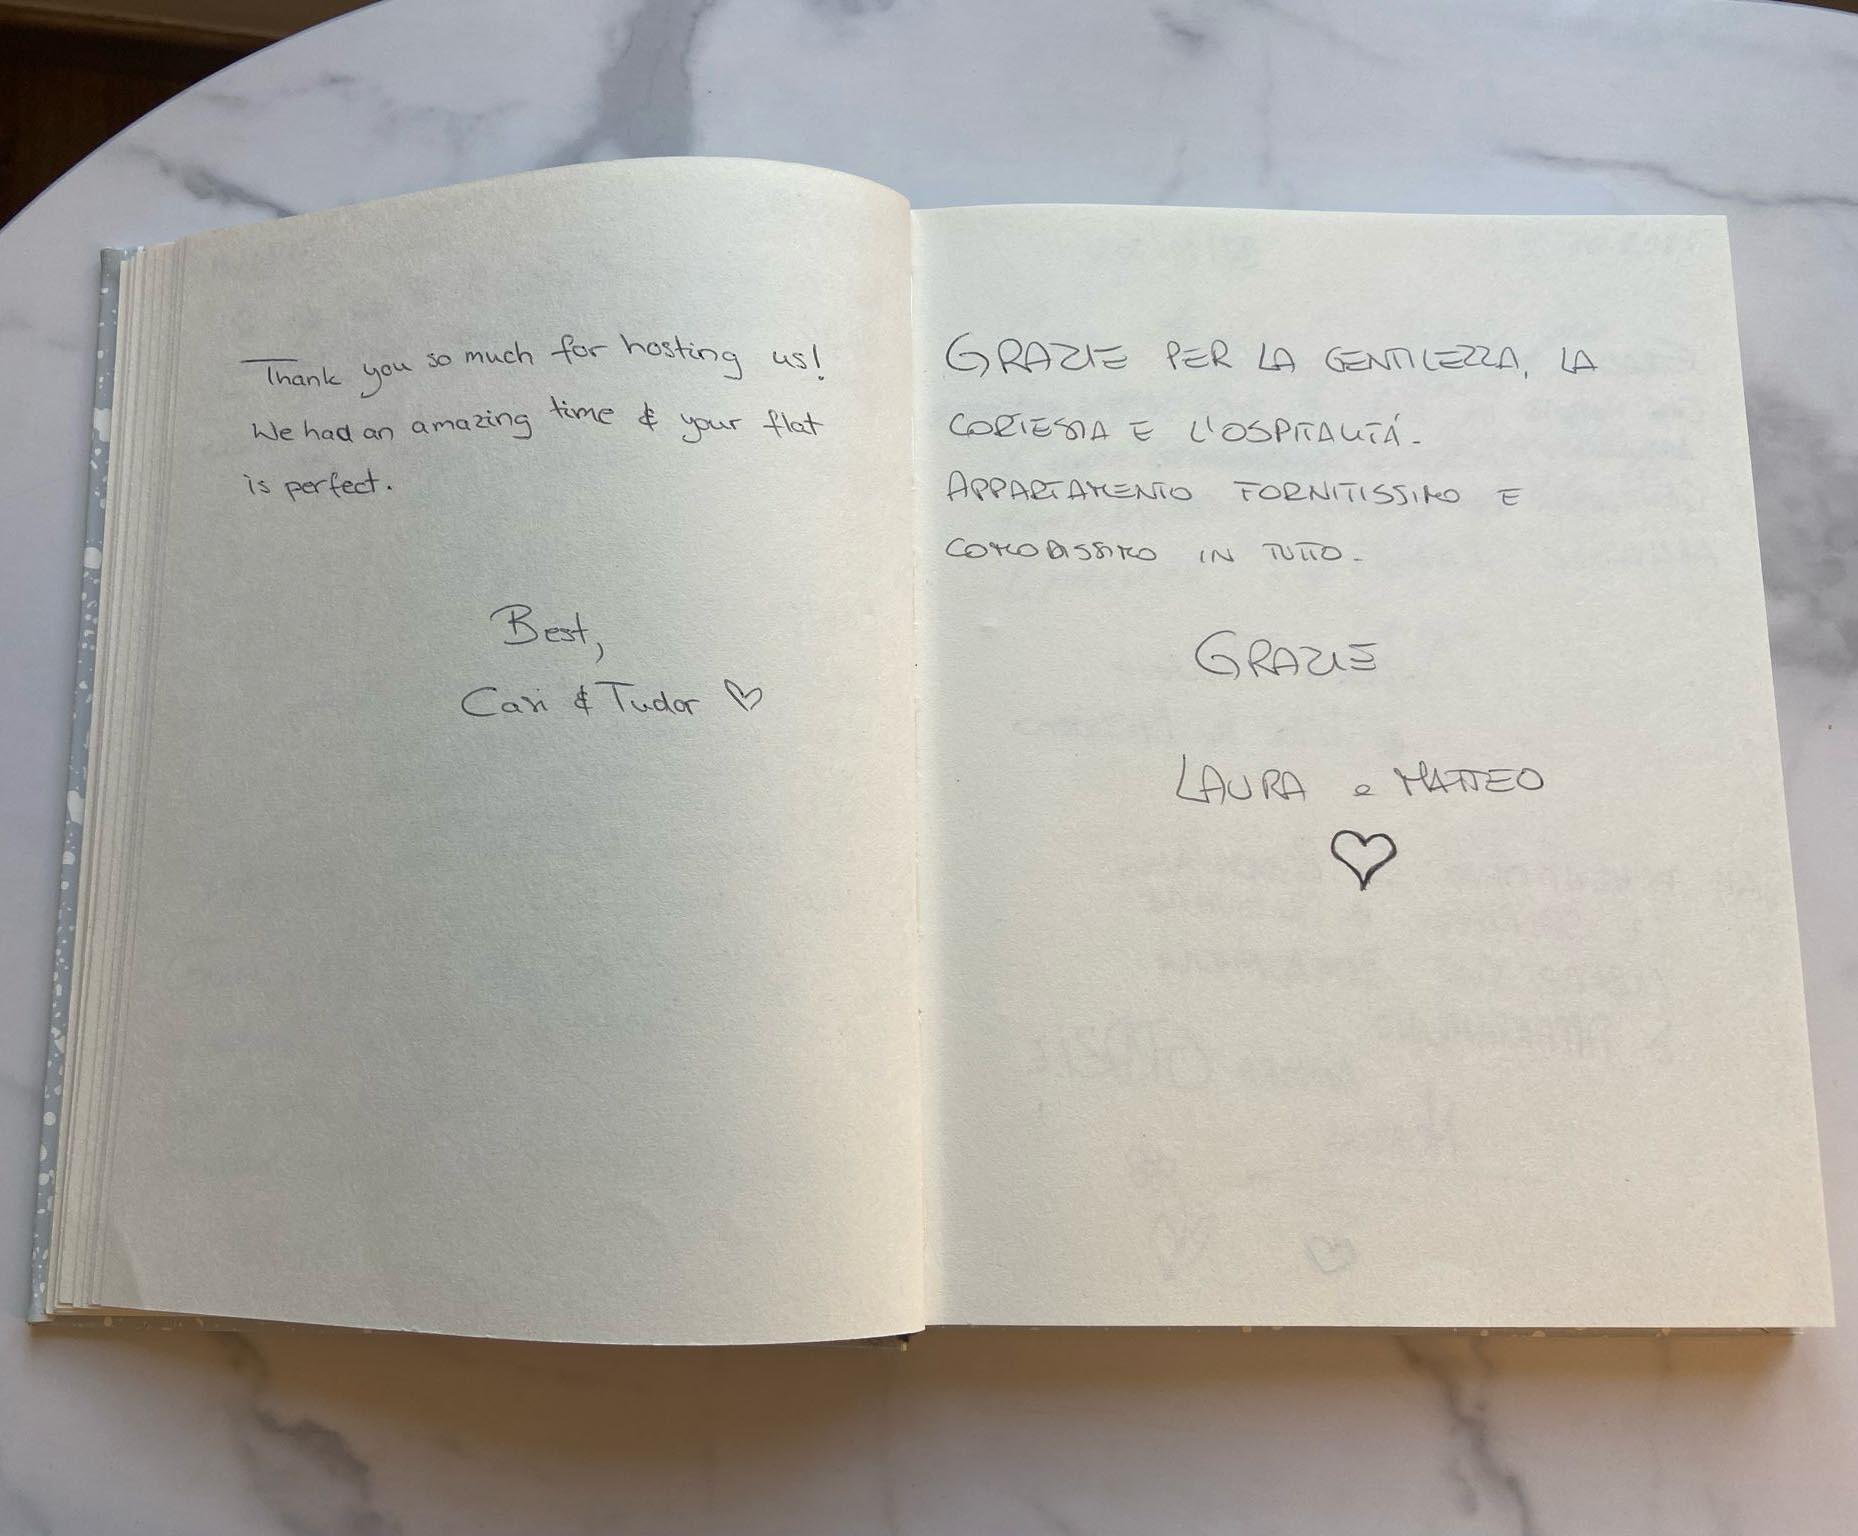 Thank you so much for hosting us!
We had an amazing time & your flat
is perfect.
Best,
Cari & Tudor ♡
GRAZIE PER LA GENTILEZZA, LA
CORTESIA E L'OSPITALITÁ.
APPARTAMENTO FORNITISSIMO E
COMODISSIMO IN TUTTO.
GRAZIE
LAURA e MATTEO
♡